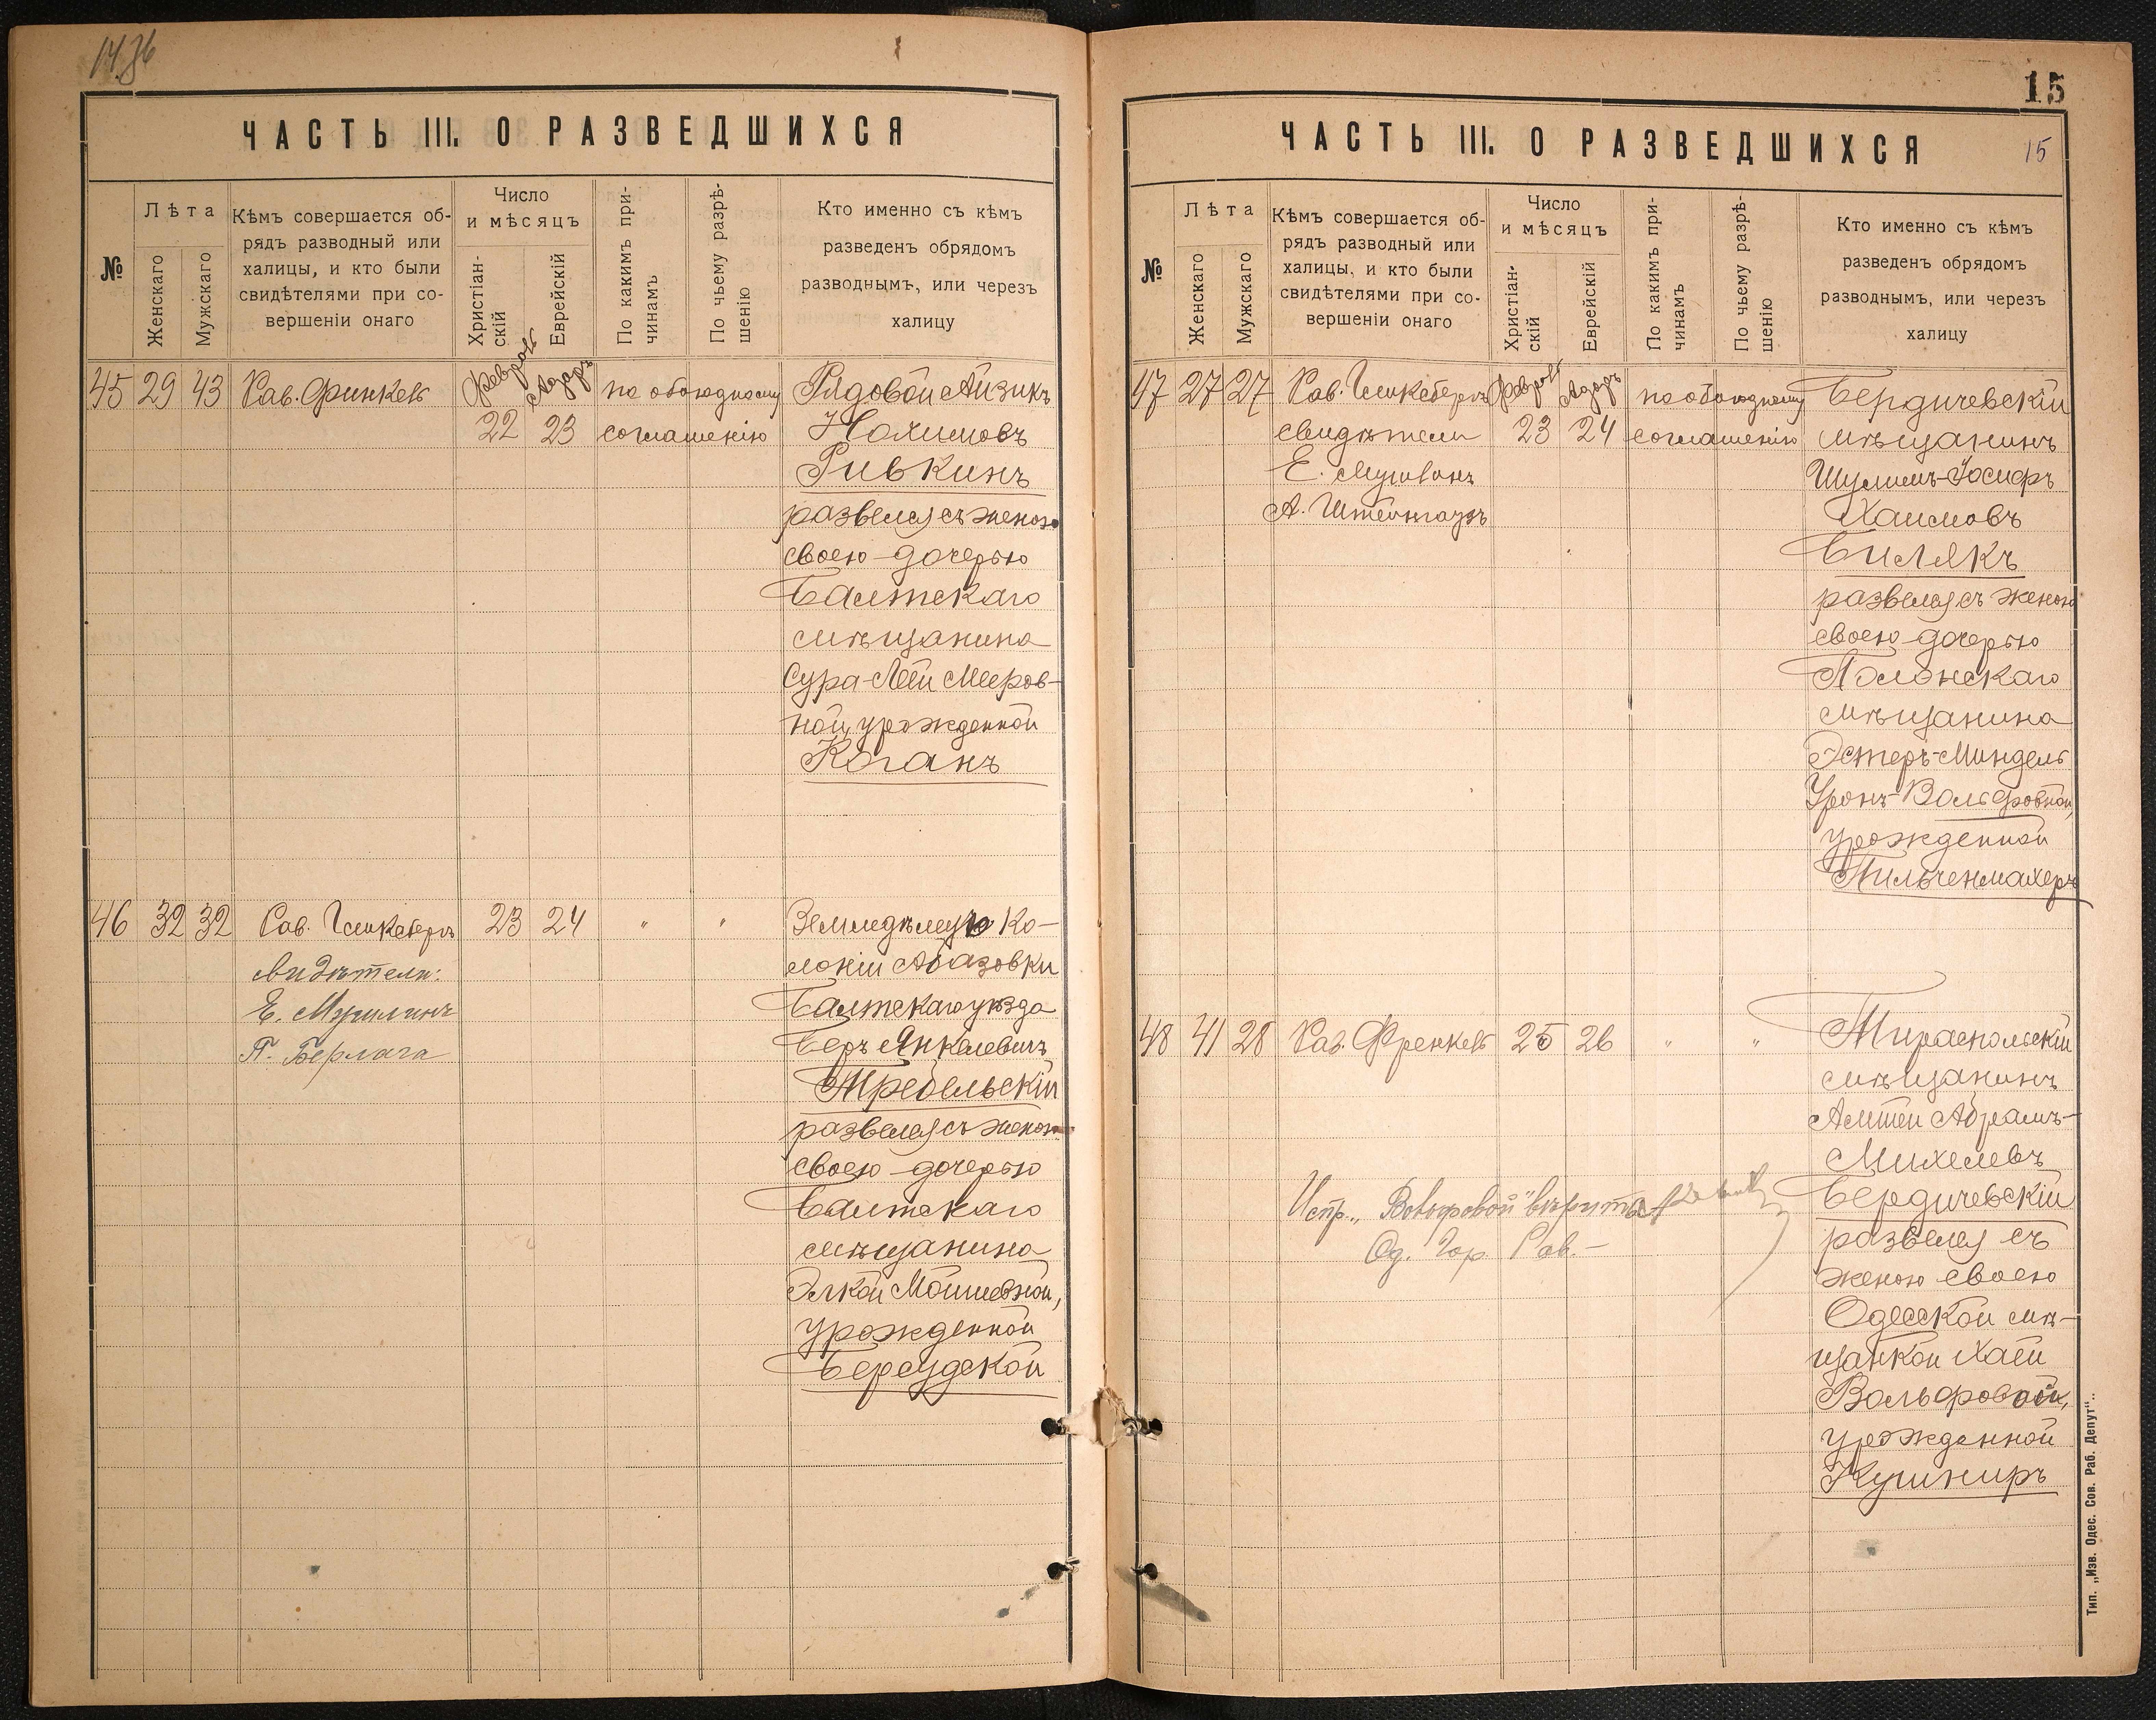 ЧАСТЬ III. О РАЗВЕДШИХСЯ
№
Лѣта
Женскаго
Мужскаго
Кѣмъ совершается об-
рядъ разводный или
халицы, и кто были
свидѣтелями при со-
вершеніи онаго
Число
и мѣсяцъ
Христіан-
скій
Еврейскій
По какимъ при-
чинамъ
По чьему разрѣ-
шенію
Кто именно съ кѣмъ
разведенъ обрядомъ
разводнымъ, или черезъ
халицу
45 29 43 Рав. Финкель Февраль 22 Адаръ 23 по обоюдному
соглашенію
Рядовой Айзикъ
Нахимовъ
Ривкинъ
развелся съ женою
своею-дочерью
Балтскаго
мѣщанина
Сура-Леи Мееров-
ной, урожденной
Коганъ
46 32 32 Рав. 23 24 " "
свидѣтели:
Е.
П. Берлага
Ко-
лоніи Абазовки
Балтскаго уѣзда
Беръ Янкелевичъ
Требельскій
развелся съ женою
своею-дочерью
Балтскаго
мѣщанина
Элкой Мошковной,
урожденной
Берсудской
15
ЧАСТЬ III. О РАЗВЕДШИХСЯ
15
№
Лѣта
Женскаго
Мужскаго
Кѣмъ совершается об-
рядъ разводный или
халицы, и кто были
свидѣтелями при со-
вершеніи онаго
Число
и мѣсяцъ
Христіан-
скій
Еврейскій
По какимъ при-
чинамъ
По чьему разрѣ-
шенію
Кто именно съ кѣмъ
разведенъ обрядомъ
разводнымъ, или черезъ
халицу
47 27 27 Рав. Февраль 23 Адаръ 24 по обоюдному
соглашенію
свидѣтели
Е.
А. Штейнгаузъ
Бердичевскій
мѣщанинъ
Шулимъ-Іосифъ
Хаимовъ
Билякъ
развелся съ женою
своею-дочерью
Полонскаго
мѣщанина
Эстеръ-Миндель
Вольфовной,
урожденной
48 41 28 Рав. Френкель 25 26 " "
Тираспольскій
мѣщанинъ
Абрамъ-
Михелевъ
Бердичевскій
развелся съ
женою своею
Одесской мѣ-
щанкой Хаей
Вольфовой,
урожденной
Кушниръ
Испр. „Вольфовой" вѣрить
Од. Гор. Рав.
Тип. „Изв. Одес. Сов. Раб. Депут".